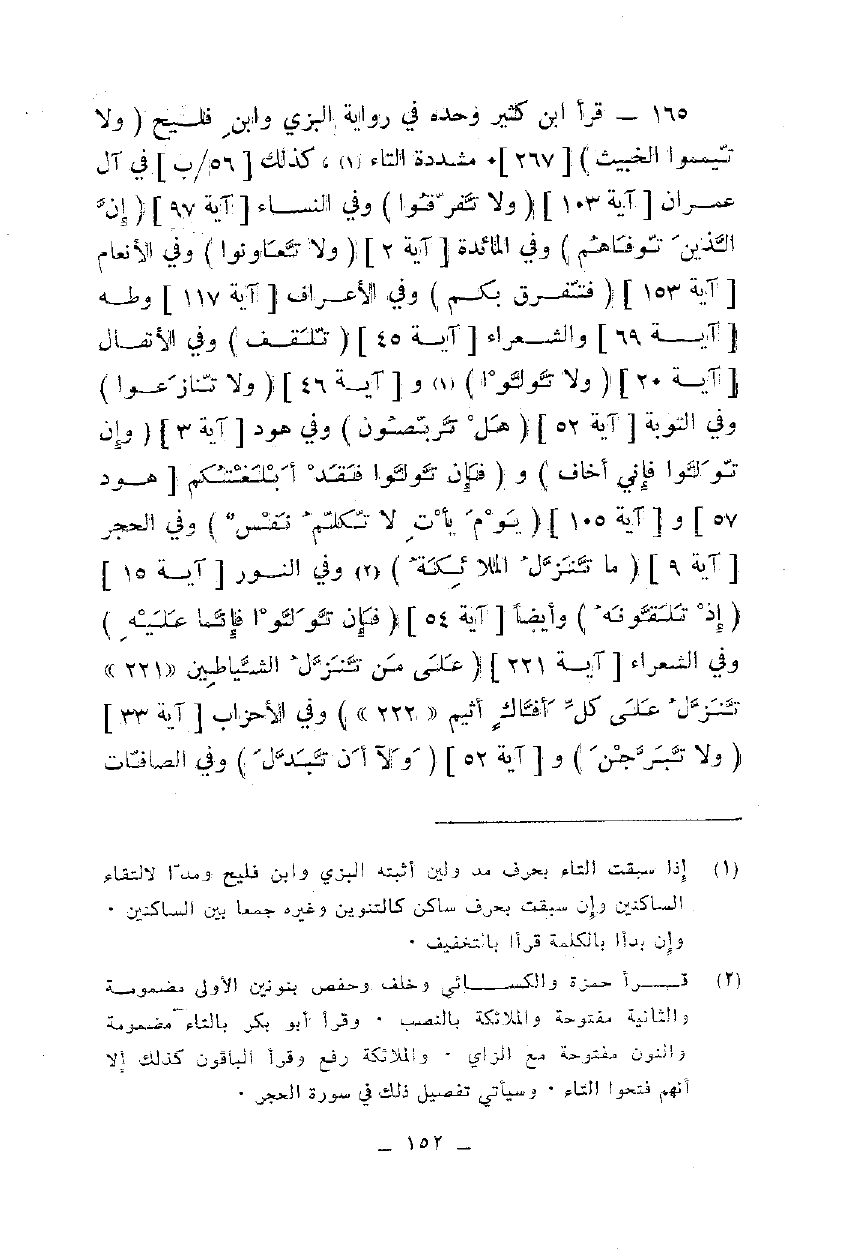 ١٦٥ ــ قرأ ابن كثير وحده في رواية البزي وابن فليح ( ولا
تّيمموا الخبيث ) [ ٢٦٧ ]٠ مشددة التاء (١) ، كذلك [ ٥٦/ب ] في آل
عمران [ آية ١٠٣ ] ( ولا تّفرّقوا ) وفي النساء [ آية ٩٧ ] ( إنّ
الّذينَ تّوفّاهُم ) وفي المائدة [ آية ٢ ] ( ولا تّعاونوا ) وفي الأنعام
[ آية ١٥٣ ] ( فتّفرق بكم ) وفي الأعراف [ آية ١١٧ ] وطه
[ آية ٦٩ ] والشعراء [ آية ٤٥ ] ( تّلقف ) وفي الأنفال
[ آية ٢٠ ] ( ولا تّولّوْا ) (١) و [ آية ٤٦ ] ( ولا تّنازَعوا )
وفي التوبة [ آية ٥٢ ] ( هَلْ تّربّصُون ) وفي هود [ آية ٣ ] ( وإن
تّوَلّوا فإني أخاف ) و ( فإن تّولّوا فَقَدْ أَبْلَغْتُكم [ هود
٥٧ ] و [ آية ١٠٥ ] ( يَوْمَ يأْتِ لا تّكلّمُ نَفْسٌ ) وفي الحجر
[ آية ٩ ] ( ما تّنَزَّلُ الملائِكةُ ) (٢) وفي النور [ آية ١٥ ]
( إذْ تّلَقّونَهُ ) وأيضاً [ آية ٥٤ ] ( فإن تّوَلّوْا فإنّما عَلَيْهِ )
وفي الشعراء [ آية ٢٢١ ] ( عَلَى مَن تّنَزَّلُ الشّياطين «٢٢١»
تّنَزَّلُ عَلَى كلِّ أَفّاكٍ أثيم « ٢٢٢ » ) وفي الأحزاب [ آية ٣٣ ]
( ولا تّبَرَّجْنَ ) و [ آية ٥٢ ] ( وَلآ أَن تّبَدَّلَ ) وفي الصافّات
(١) إذا سبقت التاء بحرف مد ولين أثبته البزي وابن فليح ومدّا لالتقاء
الساكنين وإن سبقت بحرف ساكن كالتنوين وغيره جمعا بين الساكنين ٠
وإن بدأا بالكلمة قرأا بالتخفيف ٠
(٢) قرأ حمزة والكسائي وخلف وحفص بنونين الأولى مضمومة
والثانية مفتوحة والملائكة بالنصب ٠ وقرأ أبو بكر بالتاء مضمومة
والنون مفتوحة مع الزاي ٠ والملائكة رفع وقرأ الباقون كذلك إلا
أنهم فتحوا التاء ٠ وسيأتي تفصيل ذلك في سورة الحجر ٠
ــ ١٥٢ ــ